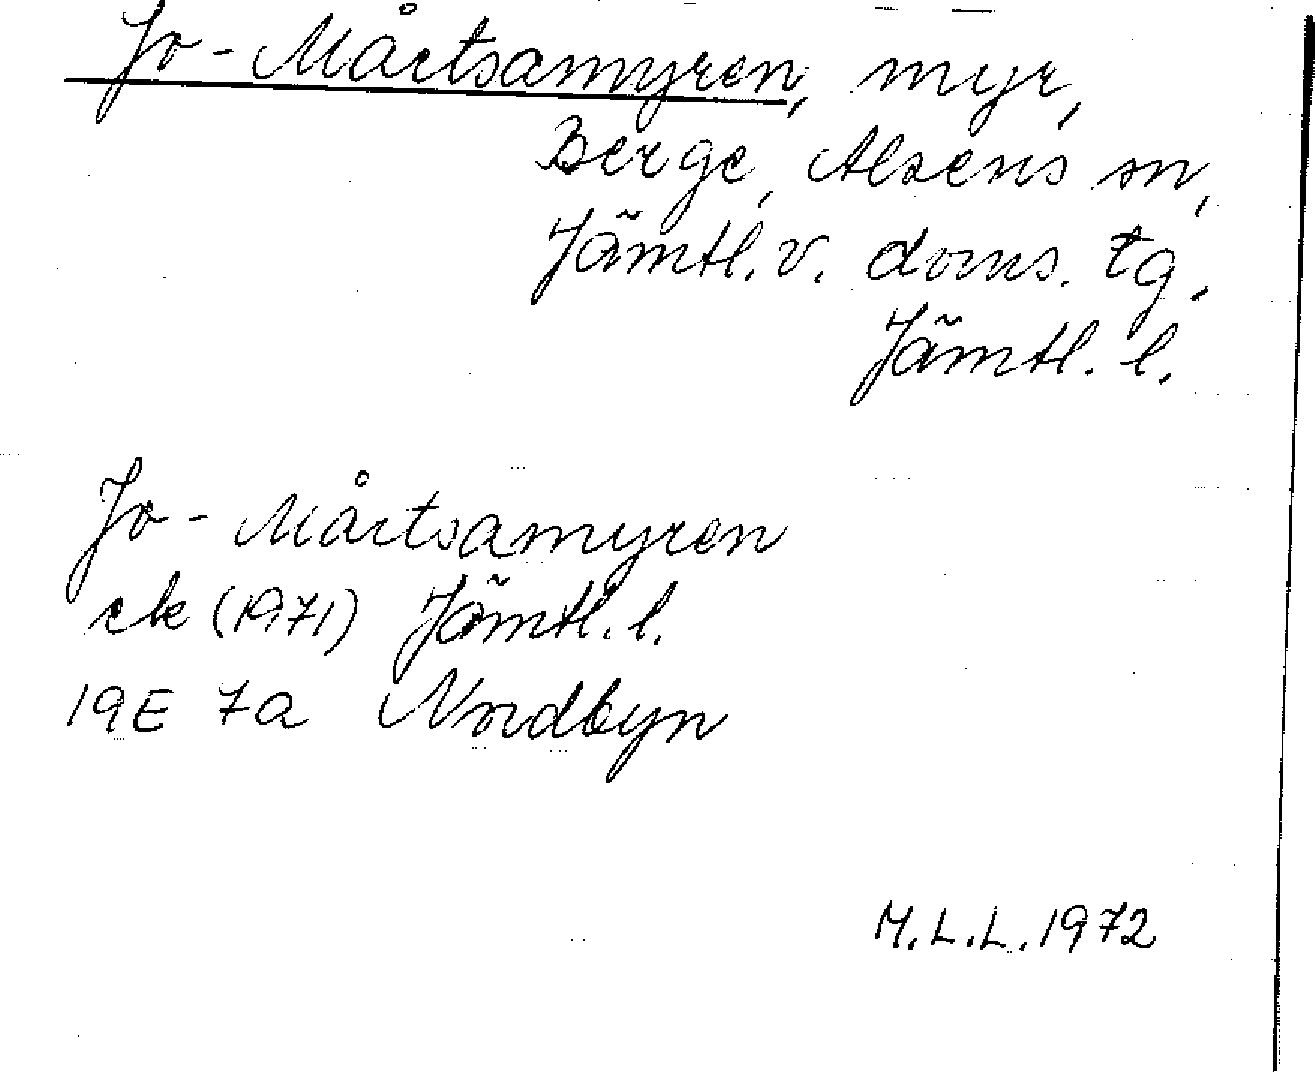 Jo-Mårtsamyren, myr,
Berge, Alsens sn,
Jämtl. v. doms. tg,
Jämtl. l.
Jo-Mårtsamyren
ek (1971) Jämtl. l.
19E 7a Nordbyn
M.L.L. 1972